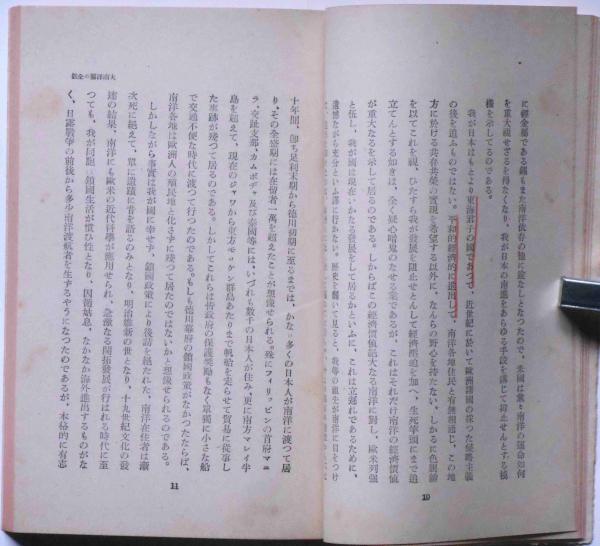 に經金屬である錫もまた南洋依存の他に途なしとなつたので、米國は業々南洋の運命如何
を重大視せざるを得なくなり、我が日本の南進をあらゆる手段を講じて抑止せんとする模
樣を示してるのである。
我が日本はもとより東海君子の國であつて、近世紀に於いて歐洲諸國の採つた侵略主義
の後を追ふものではない。平和的經濟的に進出して、南洋各地住民と有無相通じ、この地
方に於ける共存共榮の實現を希望する以外に、なんらの野心を持たない。しかるに色眼鏡
を以てこれを視、ひたすら我が發展を阻止せんとして經濟壓迫を加へ、生死竿頭にまで追
立てんとする如きは、全く疑心暗鬼のなせる業であるが、これはそれだけ南洋の經濟價値
が重大なるを示して居るのである。しからばこの經濟價値絕大なる南洋に對し、歐米列强
と伍して、我が國は現在いかなる發展をして居るかといふに、これは立遲れであるために、
遺憾ながら充分といふ譯に行かない。歷史を飜いて見ると、我等の祖先が南洋に目をつけ
10
大南洋圈の全貌
十年間、卽ち足利末期から德川初期に至るまでは、かなり多くの日本人が南洋に渡つて居
り、その全盛期には在留者一萬を超えたことが想像せられる。殊にフイリツピンの首府マニ
ラ、交趾支那、カムボヂヤ及び泰國等には、いづれも數千の日本人が住み、更に南方マレイ半
島を超えて、現在のジヤワから東方モロツケン群島あたりまで帆船を走らせて貿易に從事し
た事跡が殘つて居るのである。しかしてこれらは皆政府の保護奬勵もなく單獨に小さな船
で交通不便な時代に渡つて行つたのである。もしも德川幕府の鎖國政策がなかつたならば、
南洋各地は歐洲人の殖民地と化さずに殘つて居たのではないかと想像せられるのである。
しかしながら事實は我が國に幸せず、鎖國政策により後詰を絕たれた、南洋在住者は漸
次死に絕えて、單に遺蹟に昔を語るのみとなり、明治維新の世となり、十九世紀文化の發
達の結果、南洋にも歐米の近代科學が應用せられ、急激なる開拓發展が行はれる時代に至
つても、我が同胞は鎖國生活が慣ひ性となり、因循姑息、なかなか海外進出するものがな
く、日露戰爭の前後から多少南洋渡航者を生ずるやうになつたのであるが、本格的に有志
11